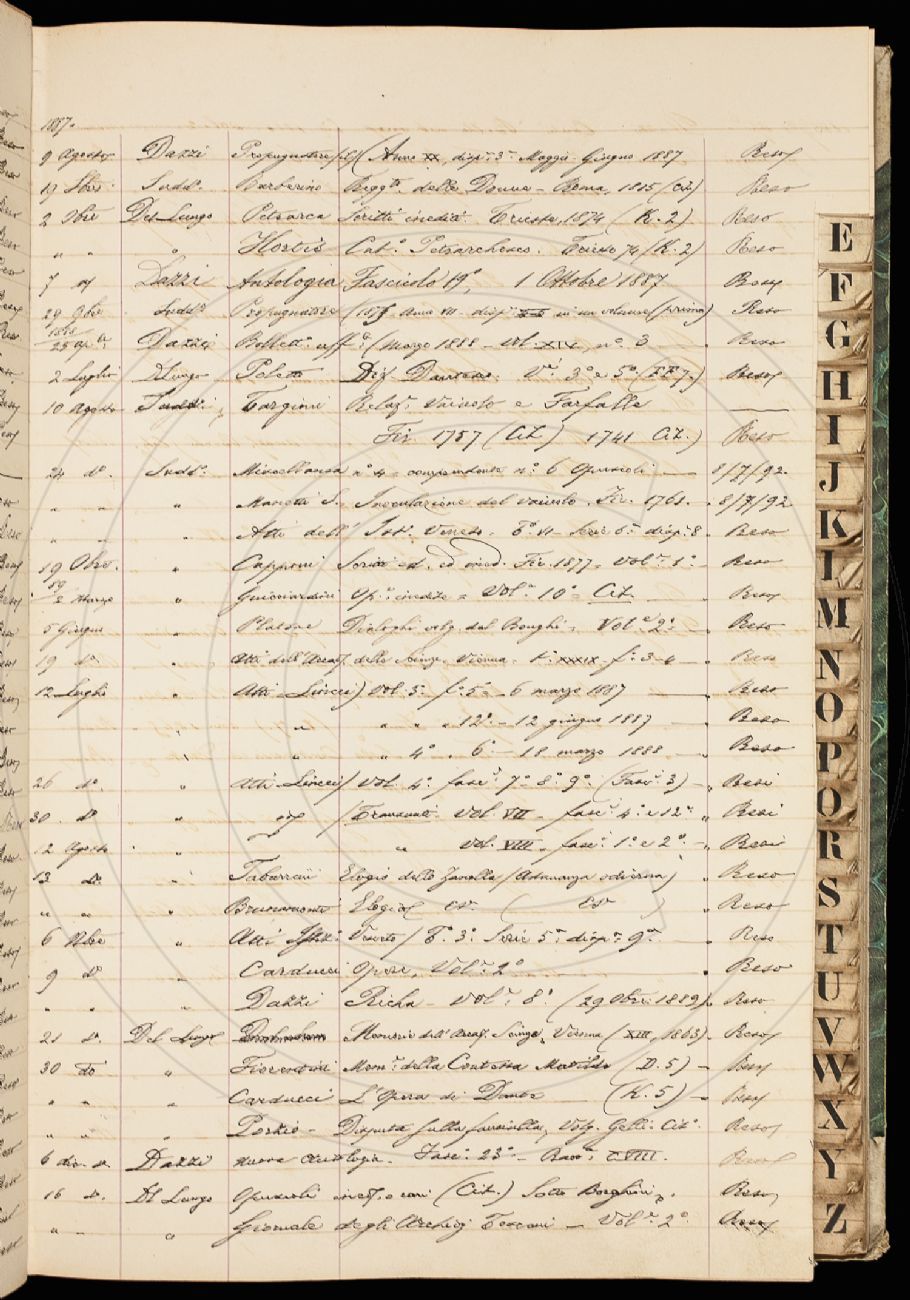 1887.
9 Agosto Dazzi Propugnatore (Anno XX, disp. 3ª Maggio Giugno 1887 Reso
Sudd. Barberino Regg.to delle Donne - Roma, 1815 (Cit) Reso
2 Obre Del Lungo Petrarca Scritti inediti. Trieste, 1874 (K. 2) Reso
" " " Hortis Cat.o Petrarchesco. Trieste 74 (K. 2) Reso
7 Dazzi Antologia Fascicolo 19°, 1 Ottobre 1887 Reso
28 9bre Sudd. Propugnatore Anno VII - disp. in un volume (primo) Reso
1888
25 Ap. Dazzi Bollett. uff. (Marzo 1888 - vol. XIV, n.° 3 Reso
2 Luglio D Lungo Poletto Diz. Dantesco. V. 3° e 5° Reso
10 Agosto Sudd. Targioni Relaz. Vaiuolo e Farfalle
Fir 1757 (Cit.) 1741 Cit.) Reso
24 d.° Sudd. Miscellanea n° 4 - contenente n.° 6 Opuscoli - 8/7/92
" " " Manetti S. Inoculazione del vaiuolo. Fir. 1761 - 8/7/92
" " " Atti dell' Ist. Veneto. T. VI - Serie 6ª disp. 8 - Reso
19 Obre. " Capponi Scritti ed. ed ined. Fir. 1877 = Vol. 1° - Reso
89
2 Marzo " Guicciardini Op. inedite = Vol. 10° = Cit. Reso
5 Giugno " Platone Dialoghi volg. dal Bonghi. Vol. 2° - Reso
19 d.° " Atti dell' Accad. delle Scienze. Vienna. t. XXXIX. f. 3-4 - Reso
12 Luglio " Atti Lincei) Vol. 3° f. 5° - 6 marzo 1887 - Reso
" " " " " 12° - 12 giugno 1887 - Reso
" " " 4° " 6° - 18 marzo 1888 - Reso
26 d.° " Atti Lincei / Vol. 4° fasc. 7° 8° 9° (Fasc. 3) - Resi
30 d.° " / Transunti Vol. VII - fasc. 4° e 12° Resi
12 Agosto " " Vol. VIII fasc. 1° e 2° - Resi
13 d.° " Tabarrini Elogio dello Zanella (Adunanza odierna) Reso
" " " Elogio Reso
6 " Atti Istit. Veneto / T. 3° Serie 5ª disp. 9ª Reso
9 d.° Carducci Opere, Vol. 2° - Reso
" " " Dazzi Richa - Vol. 8° (29 Obre. 1889) Reso
21 d. Del Lungo Memorie dell' Accad. Scienze, Vienna (XIII, 1863) - Reso
30 d° " Fiorentini Mem. della Contessa Matilde (D. 5) - Reso
" " " Carducci L'Opera di Dante (K. 5) - Reso
" " " Porzio - Disputa sulla fanciulla, Volg. Gelli. Cit. Reso
6 Dazzi Nuova Antologia. Fasc. 23° - Reso
16 d. Del Lungo Opuscoli ined. o rari (Cit.) Sotto Borghini Reso
" " " Giornale degli Archivj Toscani - Vol. 2° Reso
E
F
G
H
I
J
K
L
M
N
O
P
Q
R
S
T
U
V
W
X
Y
Z